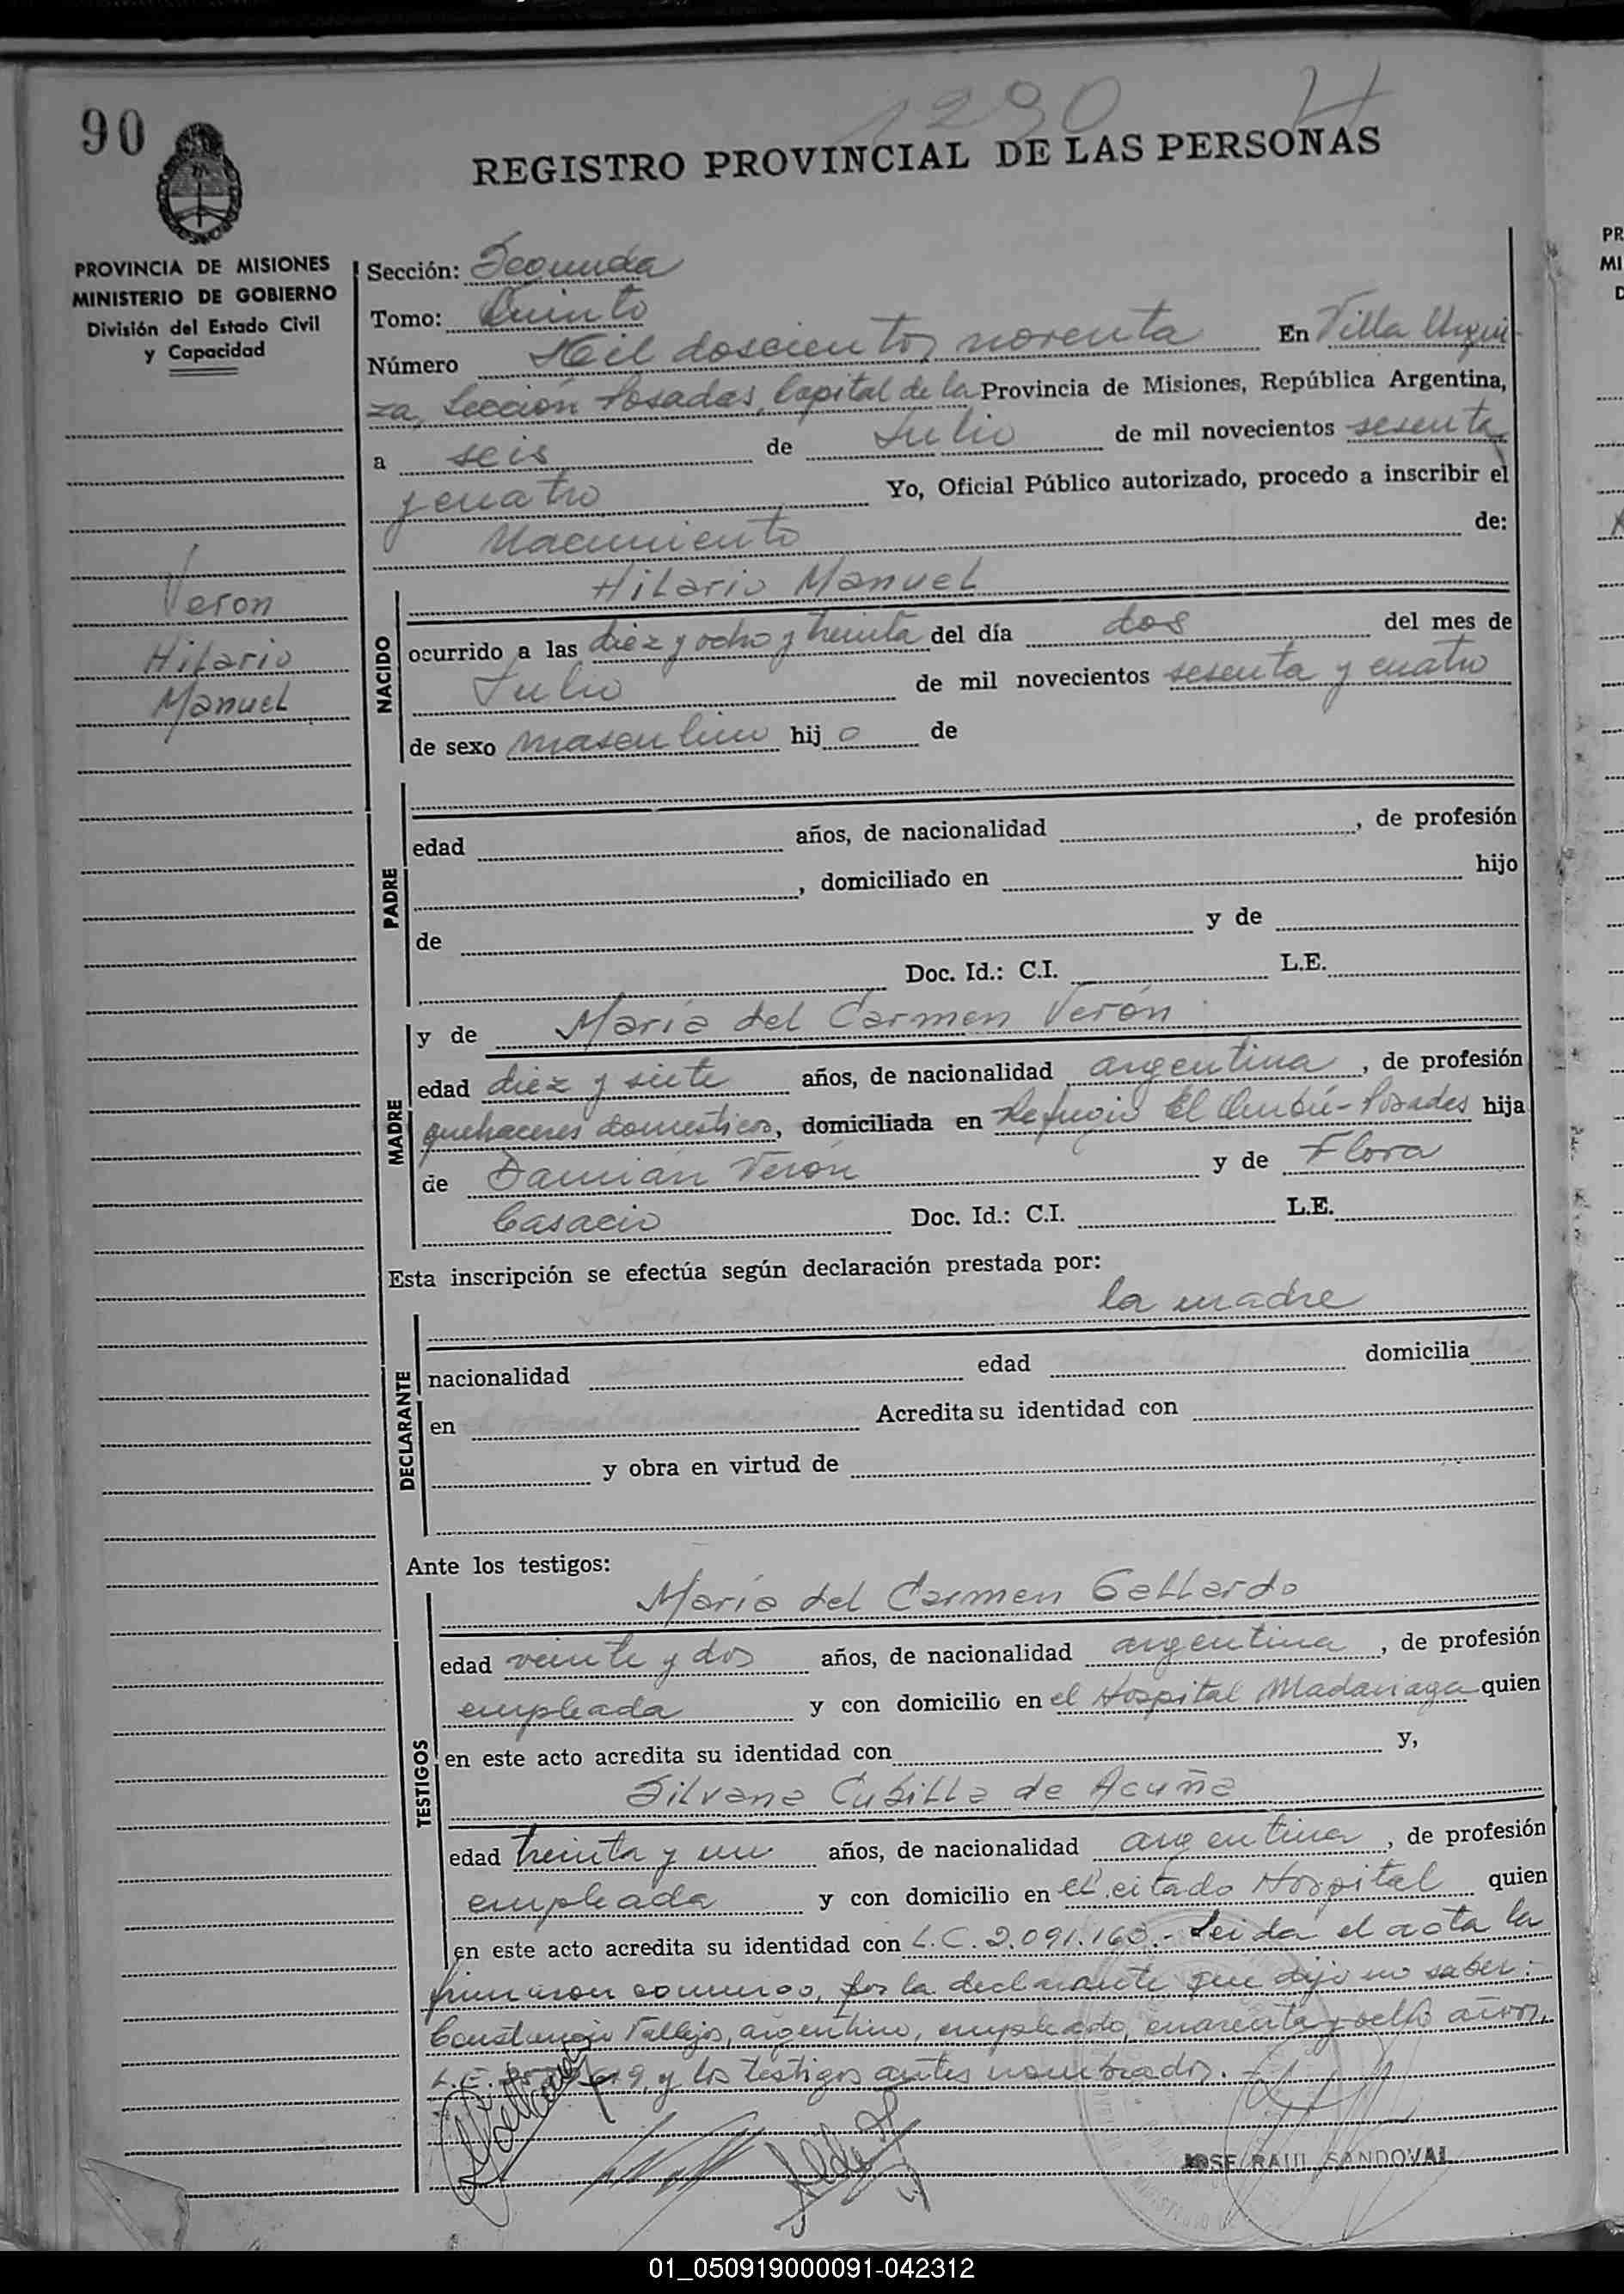 1290 H
90
REGISTRO PROVINCIAL DE LAS PERSONAS
PROVINCIA DE MISIONES
MINISTERIO DE GOBIERNO
División del Estado Civil
y Capacidad
Veron
Hilario
Manuel
Sección: Segunda
Tomo: Quinto
Número Mil doscientos noventa En Villa Urqui-
za, Sección Posadas, Capital de la Provincia de Misiones, República Argentina,
a seis de Julio de mil novecientos sesenta
y cuatro Yo, Oficial Público autorizado, procedo a inscribir el
Nacimiento de:
NACIDO
Hilario Manuel
ocurrido a las diez y ocho y treinta del día dos del mes de
Julio de mil novecientos sesenta y cuatro
de sexo masculino hijo de
PADRE
edad años, de nacionalidad , de profesión
, domiciliado en hijo
de y de
Doc. Id.: C.I. L.E.
MADRE
y de María del Carmen Verón
edad diez y siete años, de nacionalidad argentina, de profesión
quehaceres domésticos, domiciliada en Refugio El Ombú-Posadas hija
de Damián Verón y de Flora
Casacio Doc. Id.: C.I. L.E.
Esta inscripción se efectúa según declaración prestada por:
la madre
DECLARANTE
nacionalidad edad domicilia
en Acredita su identidad con
y obra en virtud de
Ante los testigos:
TESTIGOS
María del Carmen Gallardo
edad veinte y dos años, de nacionalidad argentina, de profesión
empleada y con domicilio en el Hospital Madariaga quien
en este acto acredita su identidad con y,
Silvana Cubilla de Acuña
edad treinta y un años, de nacionalidad argentina, de profesión
empleada y con domicilio en el citado Hospital quien
en este acto acredita su identidad con L.C. 2.091.163.- Leida el acta la
firmaron conmigo, por la declarante que dijo no saber:
Constancio Vallejos, argentino, empleado, cuarenta y años,
L.E. y los testigos antes nombrados.
JOSE RAUL SANDOVAL
01_050919000091-042312